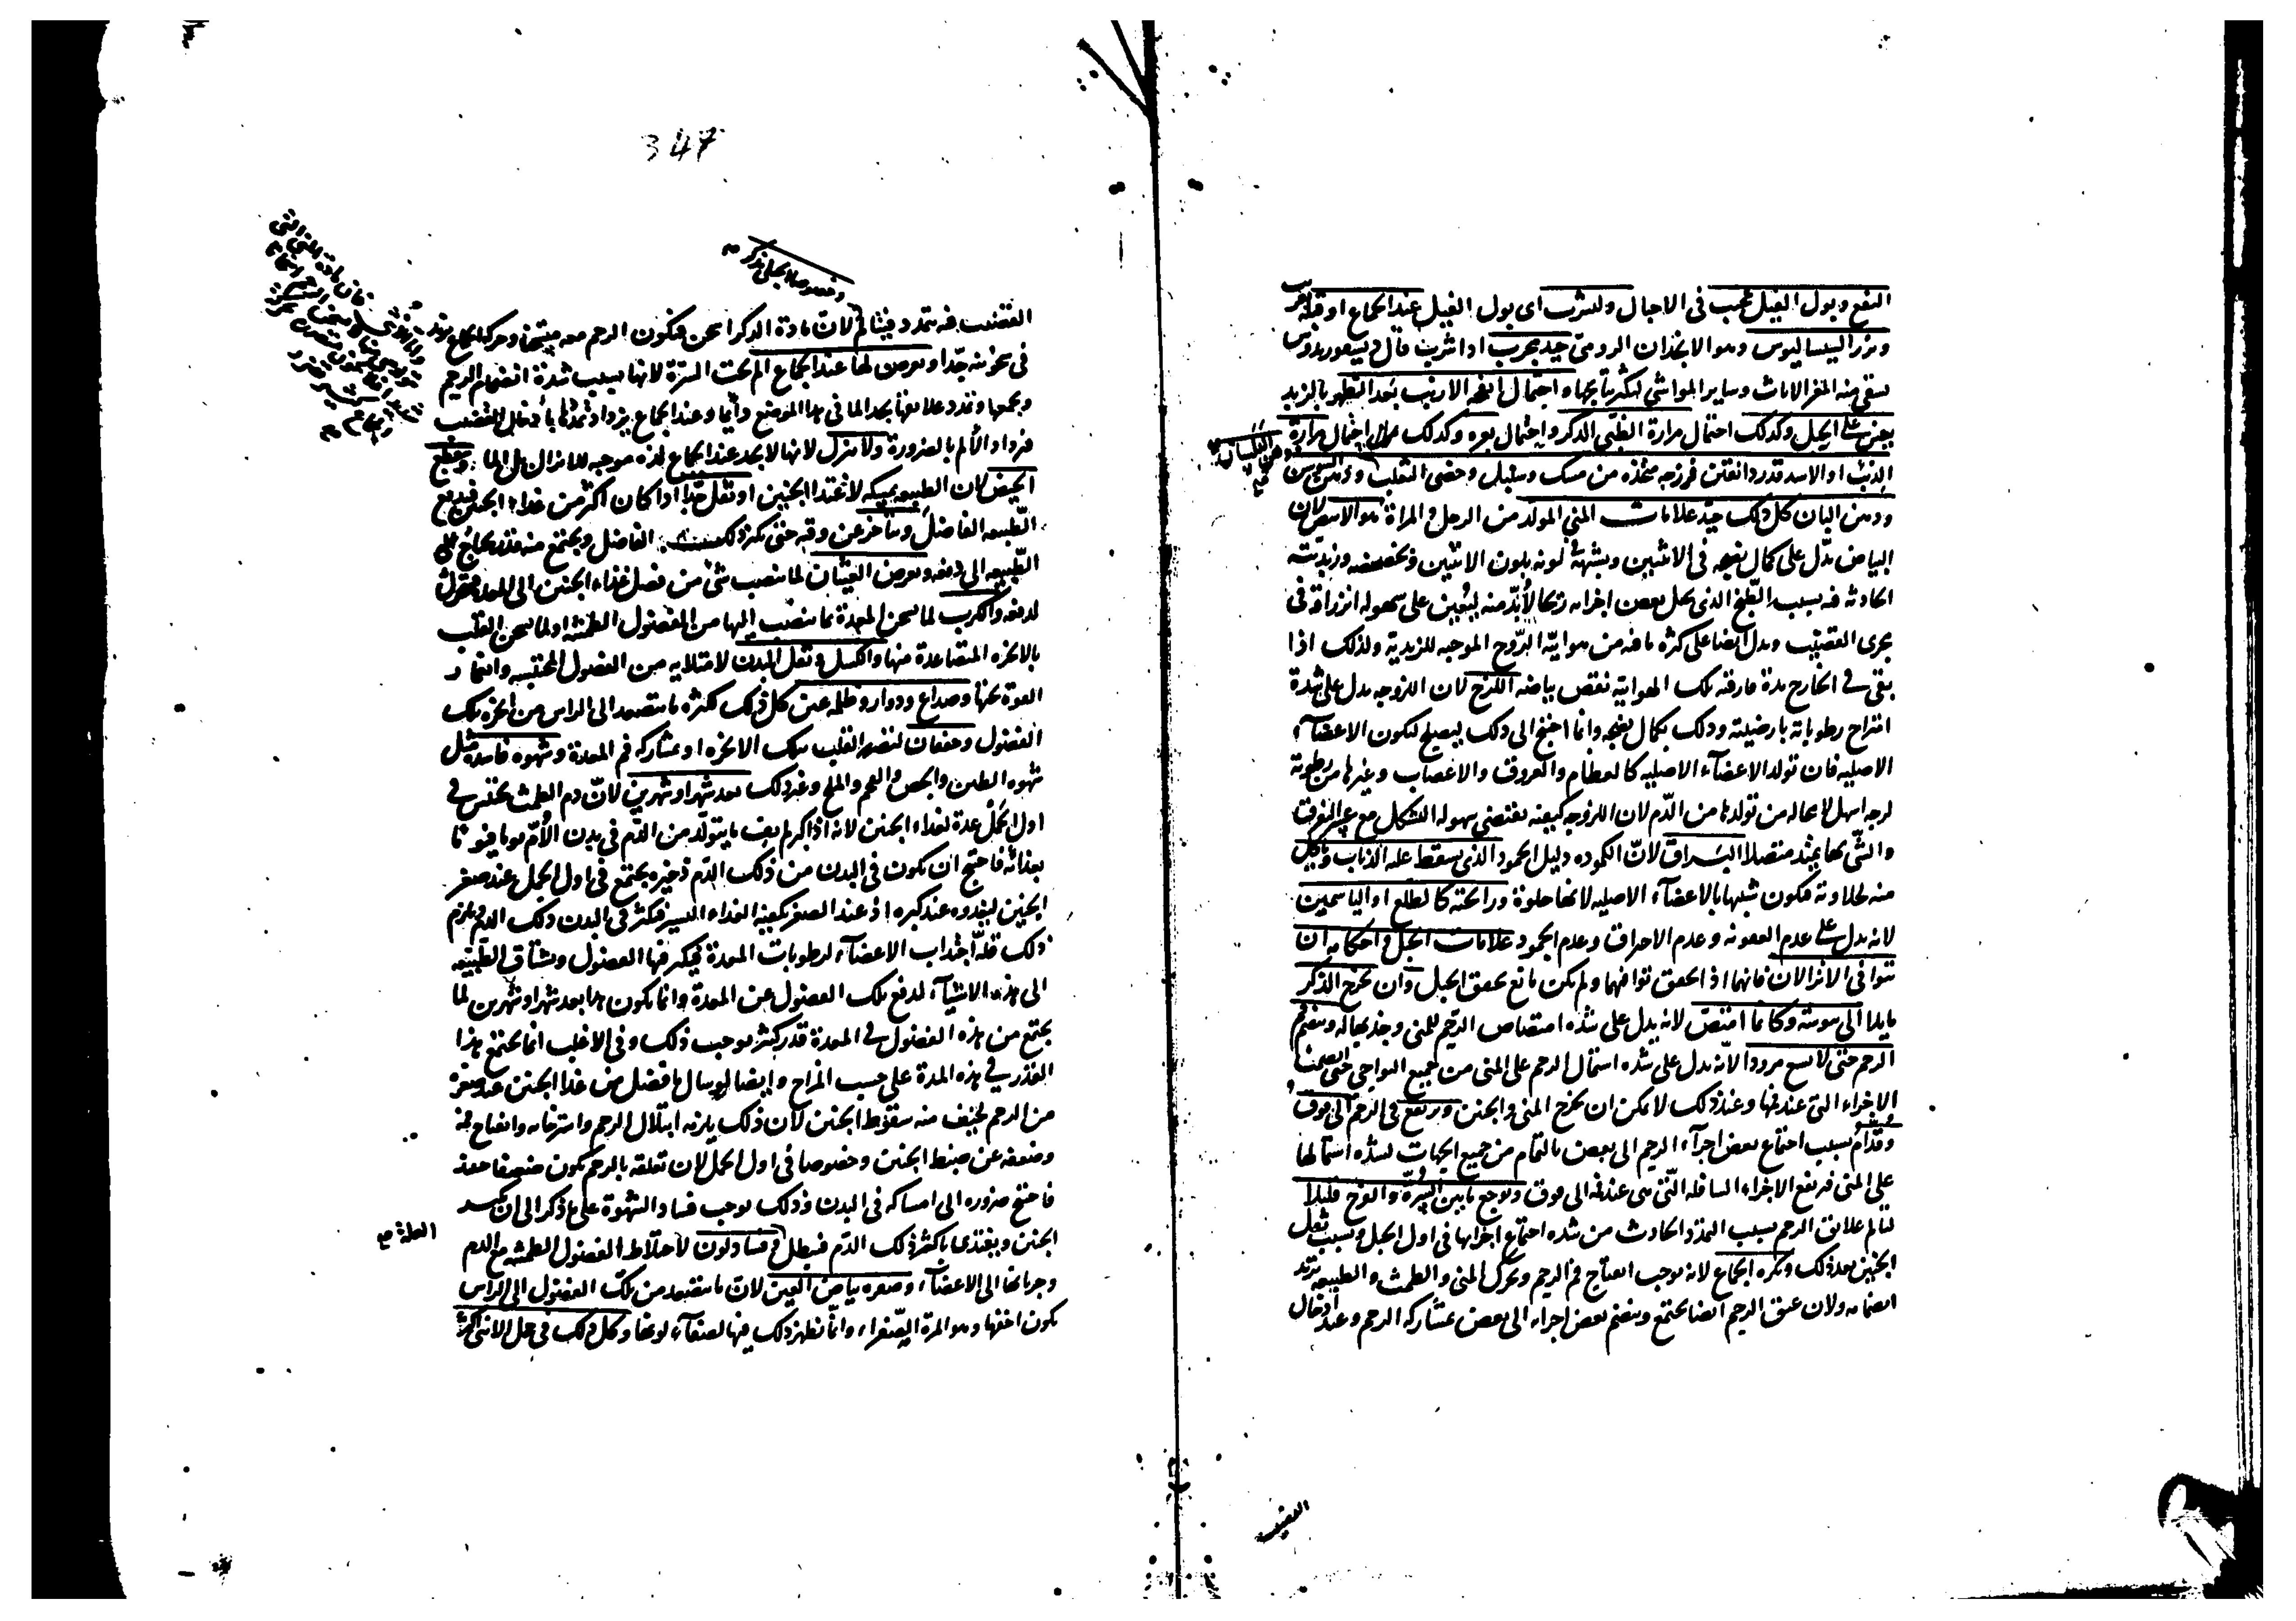 النفع وبول الفيل عجيب فى الاحبال ولتشرب اى بول الفيل عند الجماع او قبله قريب
وبزر السيساليوس وهو الانجذان الرومى جيد مجرب اذا شرب قال ديسقوريدوس
يسقى منه المعز الاناث وساير المواشى لتكثر نتاجها واحتمال انفحة الارنب بعد التطهر بالزبد
يعين على الحبل وكذلك احتمال مرارة الظبى الذكر واحتمال بعره وكذلك احتمال مرارة
الذئب او الاسد قدر دانقين فرزجه متخذه من مسك وسنبل وخصى الثعلب ودهن
ودهن البان كل ذلك جيد علامات المنى المولد من الرجل والمراة هو الابيض لان
البياض يدل على كمال نضجه فى الانثيين وتشبهه فى لونه بلون الانثيين وزبديته
الحادثه فيه بسبب الطبخ الذى يحيل بعض اجزائه ريحا لابد منه ليعين على سهوله انزراقه فى
مجرى القضيب ويدل ايضا على كثره ما فيه من هوائية الروح الموجبه للزبدية ولذلك اذا
بقى فى الخارج مدة فارقته تلك الهوائية نقص بياضه اللزج لان اللزوجه تدل على شدة
امتزاج رطوباته بارضيته وذلك بكمال نضجه وانما احتيج الى ذلك ليصلح لتكون الاعضآء
الاصليه فان تولد الاعضآء الاصليه كالعظام والعروق والاعصاب وغيرها من رطوبة
لزجه اسهل لا محاله من تولدها من الدم لان اللزوجه كيفيه تقتضى سهوله التشكل مع عسر التفرق
والشى بها يمتد متصلا البراق لان الكموده دليل الجمود الذى يسقط عليه الذباب وياكل
منه لحلاوته فيكون شبيها بالاعضآء الاصليه لانها حلوة ورائحته كالطلع او الياسمين
لانه يدل على عدم العفونه وعدم الاحراق وعدم الجمود علامات الحبل واحكامه ان
يتوافى الانزالان فانهما اذا تحقق توافيهما ولم يكن مانع تحقق الحبل وان يخرج الذكر
مايلا الى يبوسة وكانما امتص لانه يدل على شده امتصاص الرحم للمنى وجذبها له وينضم فم
الرحم حتى لا يسع مرودا لانه يدل على شده اشتمال الرحم على المنى من جميع النواحى حتى
الاجزاء التى عند فمها وعند ذلك لا يمكن ان يخرج المنى والجنين ويرتفع فى الرحم الى فوق
وقدام بسبب اجتماع بعض اجزآء الرحم الى بعض بالتمام من جميع الجهات لشده اشتمالها
على المنى فيرتفع الاجزاء السافله التى هى عند فمه الى فوق وتوجع ما بين السرة والفرج قليلا
لتالم علائق الرحم بسبب التمدد الحادث من شده اجتماع اجزائها فى اول الحبل وبسبب ثقل
الجنين بعد ذلك وتكره الجماع لانه يوجب انفتاح فم الرحم وتحرك المنى والطمث والطبيعه تريد
انضمامه ولان عنق الرحم ايضا يجتمع وينضم بعض اجزائه الى بعض بمشاركه الرحم وعند ادخال
القضيب
347
وخصوصا الحبلى بذكر
القضيب فيه يتمدد فيتالم لان مادة الذكر اسخن فيكون الرحم معه متسخنا وحركه الجماع تزيد
فى سخونته جدا ويعرض لها عند الجماع الم تحت السرة لانها بسبب شدة انضمام الرحم
وتجمعها وتمدد علائقها تجد الما فى هذا الموضع دائما وعند الجماع يزداد تمددها بادخال القضيب
فيزداد الألم بالضرورة ولا تنزل لانها لا تجد عند الجماع لذه موجبه للانزال بل الما وينقطع
الحيض لان الطبيعه تمسكه لاغتذا الجنين او تقل جدا اذا كان اكثر من غذاء الجنين فيدفع
الطبيعه الفاضل ويتاخر عن وقته حتى يكثر ذلك الفاضل ويجتمع منه قدر يحتاج
الطبيعه الى دفعه ويعرض الغثيان لما ينصب شئ من فضل غذاء الجنين الى المعده فتحرك
لدفعه والكرب لما يسخن المعدة بما ينصب اليها من الفضول الطمثيه او لما يسخن القلب
بالابخره المتصاعدة منها والكسل وثقل البدن لامتلائه من الفضول المحتبسه وانغمار
القوة تحتها وصداع ودوار وظلمه عين كل ذلك لكثره ما يتصعد الى الراس من ابخره تلك
الفضول وخفقان لتضرر القلب بتلك الابخره او بمشاركه فم المعدة وشهوه فاسده مثل
شهوه الطين والجص والفحم والملح وغير ذلك بعد شهر او شهرين لان دم الطمث يحتبس فى
اول الحمل عدة لغذاء الجنين لانه اذا كبر لم يف ما يتولد من الدم فى بدن الأم يوما فيوما
بغذائه فاحتيج ان يكون فى البدن من ذلك الدم ذخيره يجتمع فى اول الحمل عند صغر
الجنين ليغذوه عند كبره اذ عند الصغر يكفيه الغذاء اليسير فيكثر فى البدن ذلك الدم ويلزم
ذلك قلة اجتذاب الاعضآء لرطوبات المعدة فيكثر فيها الفضول ويشتاق الطبيعه
الى هذه الاشيآء لدفع تلك الفضول عن المعدة وانما يكون هذا بعد شهر او شهرين لما
يجتمع من هذه الفضول فى المعدة قدر كثير يوجب ذلك وفى الاغلب انما يجتمع هذا
القدر فى هذه المدة على حسب المزاج وايضا لو سال ما فضل من غذا الجنين عند صغره
من الرحم لخيف منه سقوط الجنين لان ذلك يلزمه ابتلال الرحم واسترخائه وانفتاح فمه
وضعفه عن ضبط الجنين وخصوصا فى اول الحمل لان تعلقه بالرحم يكون ضعيفا حينئذ
فاحتيج ضروره الى امساكه فى البدن وذلك يوجب فساد الشهوة على ما ذكر الى ان يكبر
الجنين ويغتذى باكثر ذلك الدم فيبطل وفساد لون لاختلاط الفضول الطمثيه مع الدم
وجريانها الى الاعضآء وصفره بياض العين لان ما يتصعد من تلك الفضول الى الراس
يكون اخفها وهو المرة الصفراء وانما يظهر ذلك فيها لصفآء لونها وكل ذلك فى حبل الانثى اكثر